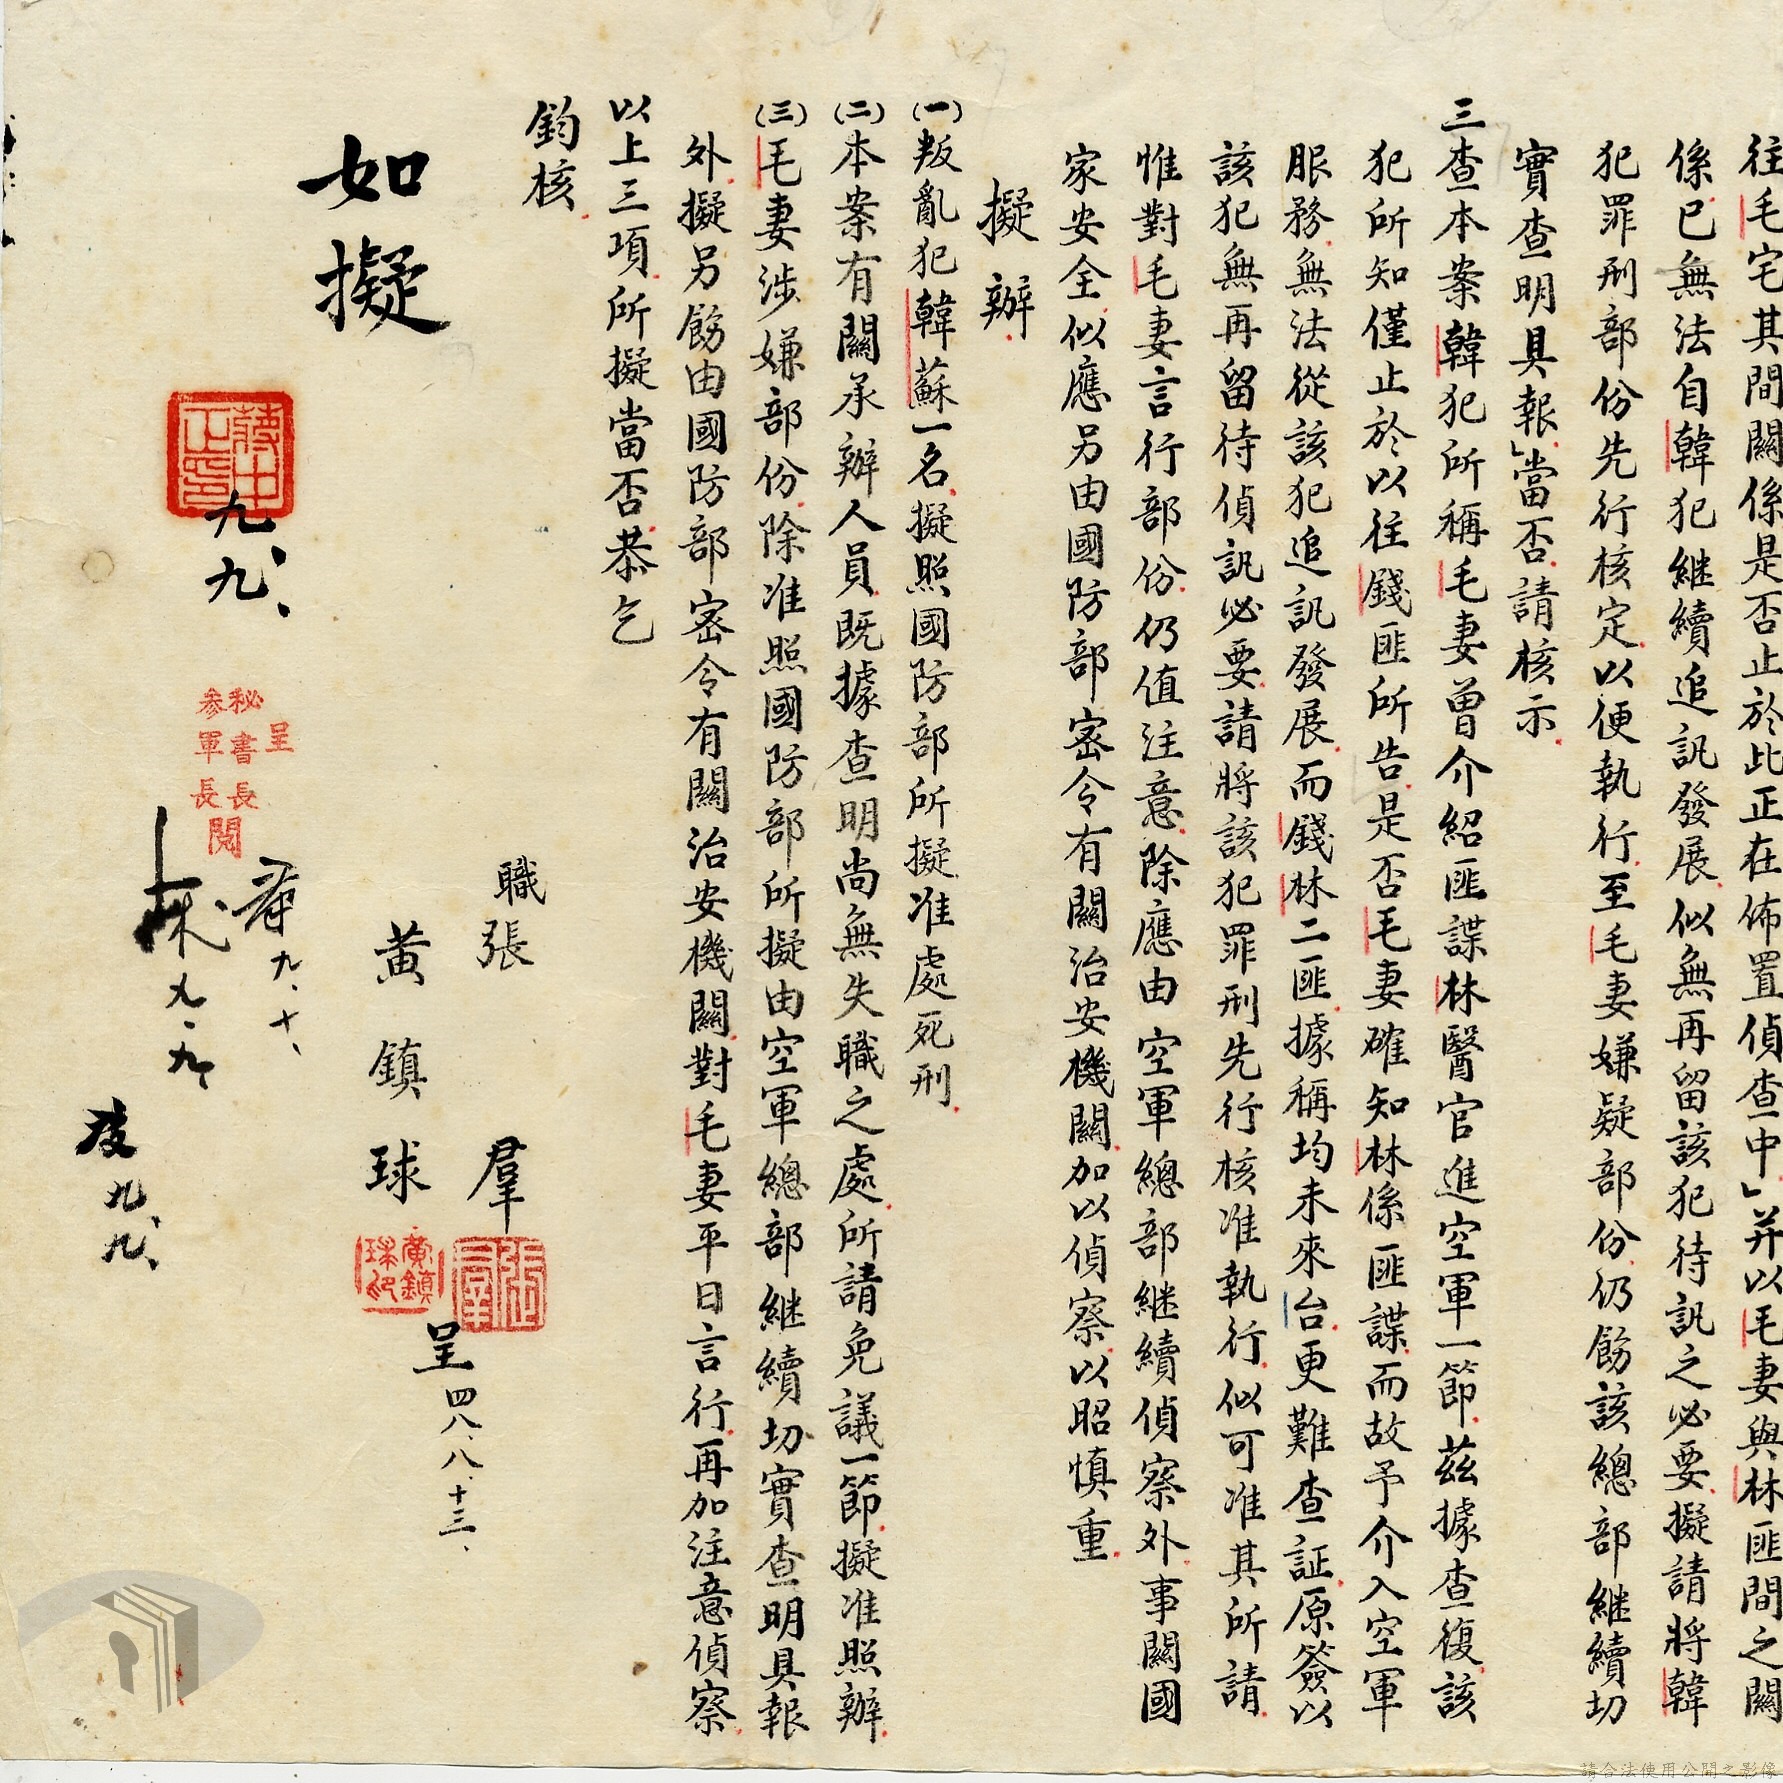 往毛宅其間關係是否止於此正在佈置偵查中」并以毛妻與林匪間之關
係已無法自韓犯继續追訊發展似無再留該犯待訊之必要擬請將韓
犯罪刑部份先行核定以便執行至毛妻嫌疑部份仍飭該總部继續切
實查明具報」當否請核示
三查本案韓犯所稱毛妻曾介紹匪諜林醫官進空軍一節茲據查復該
犯所知僅止於以往錢匪所告是否毛妻確知林係匪諜而故予介入空軍
服務無法從該犯追訊發展而錢林二匪據稱均未來台更難查証原簽以
該犯無再留待偵訊必要請將該犯罪刑先行核准執行似可准其所請
惟對毛妻言行部份仍值注意除應由空軍總部继續偵察外事關國
家安全似應另由國防部密令有關治安機關加以偵察以昭慎重
擬辦
(一)叛亂犯韓蘇一名擬照國防部所擬准處死刑
(二)本案有關承辦人員既據查明尚無失職之處所請免議一節擬准照辦
(三)毛妻涉嫌部份除准照國防部所擬由空軍總部继續切實查明具報
外擬另飭由國防部密令有關治安機關對毛妻平日言行再加注意偵察
以上三項所擬當否恭乞
鈞核
職張羣
張羣
黃鎮球
黃鎮球印
呈四八、八、十三、
如擬
蔣中正印
九、九、
呈
秘書長
參軍長閱
九、十、
九、九、
九、九、
請合法使用公開之影像